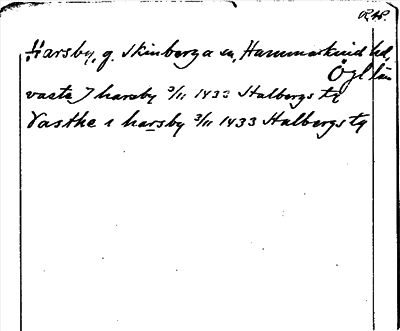 Harsby, g. Skönberga sn, Hammarkind hd,
Ögl län
vasta J harsby 3/11 1433 Stalbergs tq
Vastke i harsby 3/11 1433 Stalbergs tq